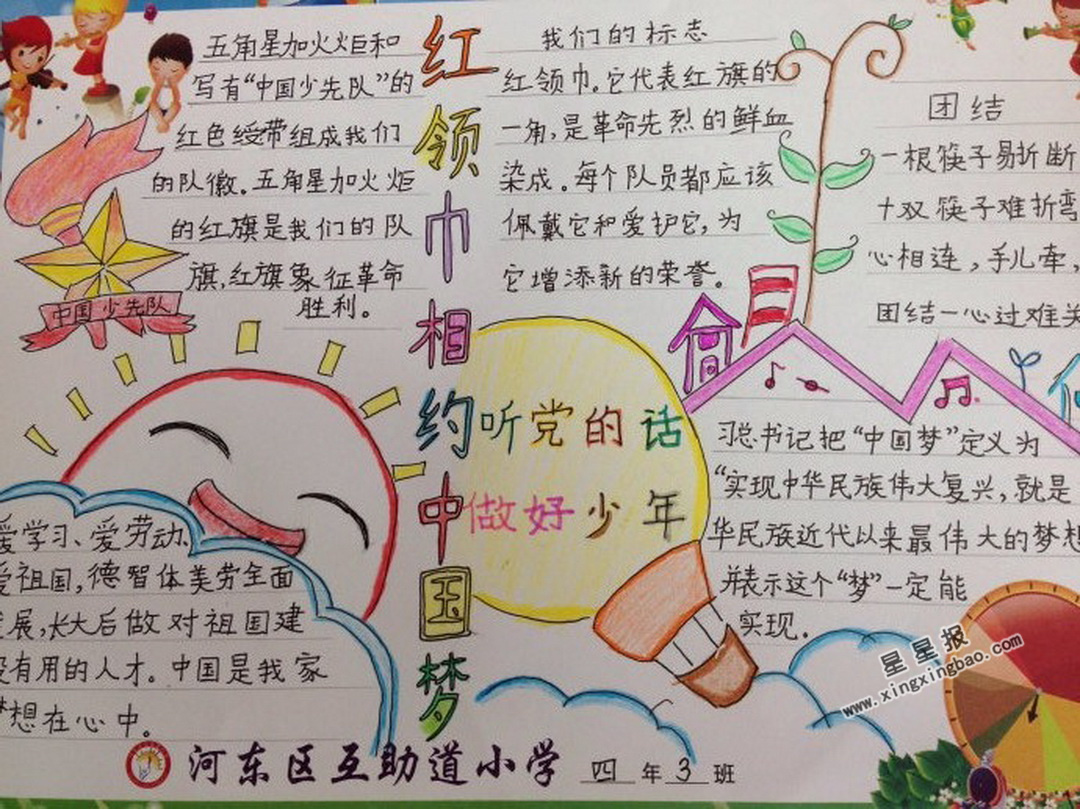 红领巾相约中国梦
五角星加火炬和
写有“中国少先队”的
红色绶带组成我们
的队徽。五角星加火炬
的红旗是我们的队
旗,红旗象征革命
胜利。
中国少先队
我们的标志
红领巾。它代表红旗的
一角,是革命先烈的鲜血
染成。每个队员都应该
佩戴它和爱护它,为
它增添新的荣誉。
团结
一根筷子易折断
十双筷子难折弯
心相连,手儿牵,
团结一心过难关
听党的话
做好少年
习总书记把“中国梦”定义为
“实现中华民族伟大复兴,就是
华民族近代以来最伟大的梦想
并表示这个“梦”一定能
实现.
爱学习、爱劳动、
爱祖国,德智体美劳全面
发展,长大后做对祖国建
设有用的人才。中国是我家
梦想在心中。
星星报
www.xingxingbao.com
河东区互助道小学 四年3班